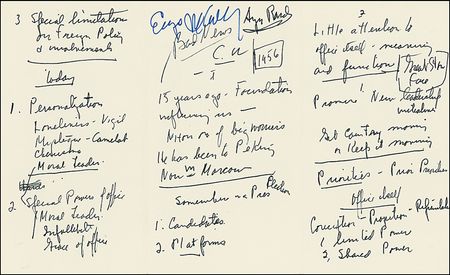 3 Special limitation
on Foreign Policy
& involvements
Today
1. Personalization
Loneliness - Vigil
Mystique - Camelot
Charisma
Moral Leader
2 Special Powers of office
Moral Leader
Infallibility
Grace of office
Ayn Rand
Bad News
C
I
1456
15 years ago - Foundation
influencing us -
Nixon no of big worries
He has been to Peking
Now in Moscow
Somewhere - a Pres Election
1. Candidates
2. Platforms
3
Little attention to
office itself - meaning
and function
Great Stone
Face
Promises New leadership
Get Country moving
or Keep it moving
Priorities - Prior
Office itself
Conception - Projection -
1 limited Power
2, Shared Power